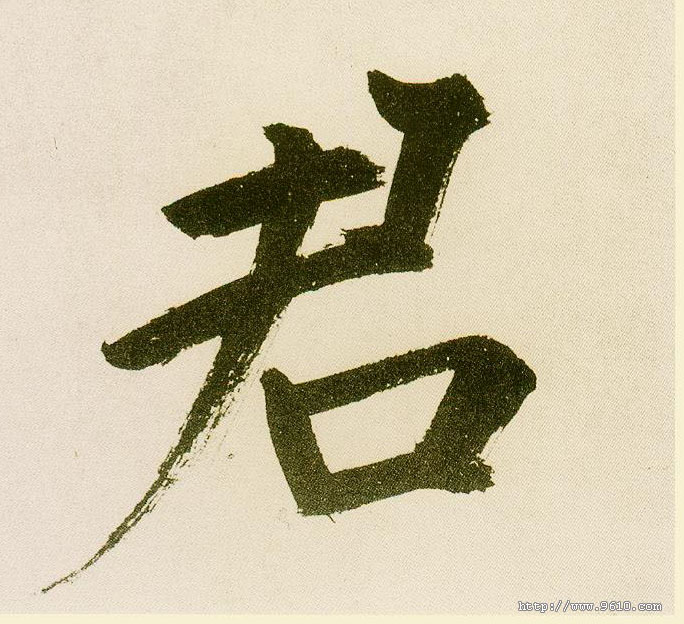 君
http://www.9610.com